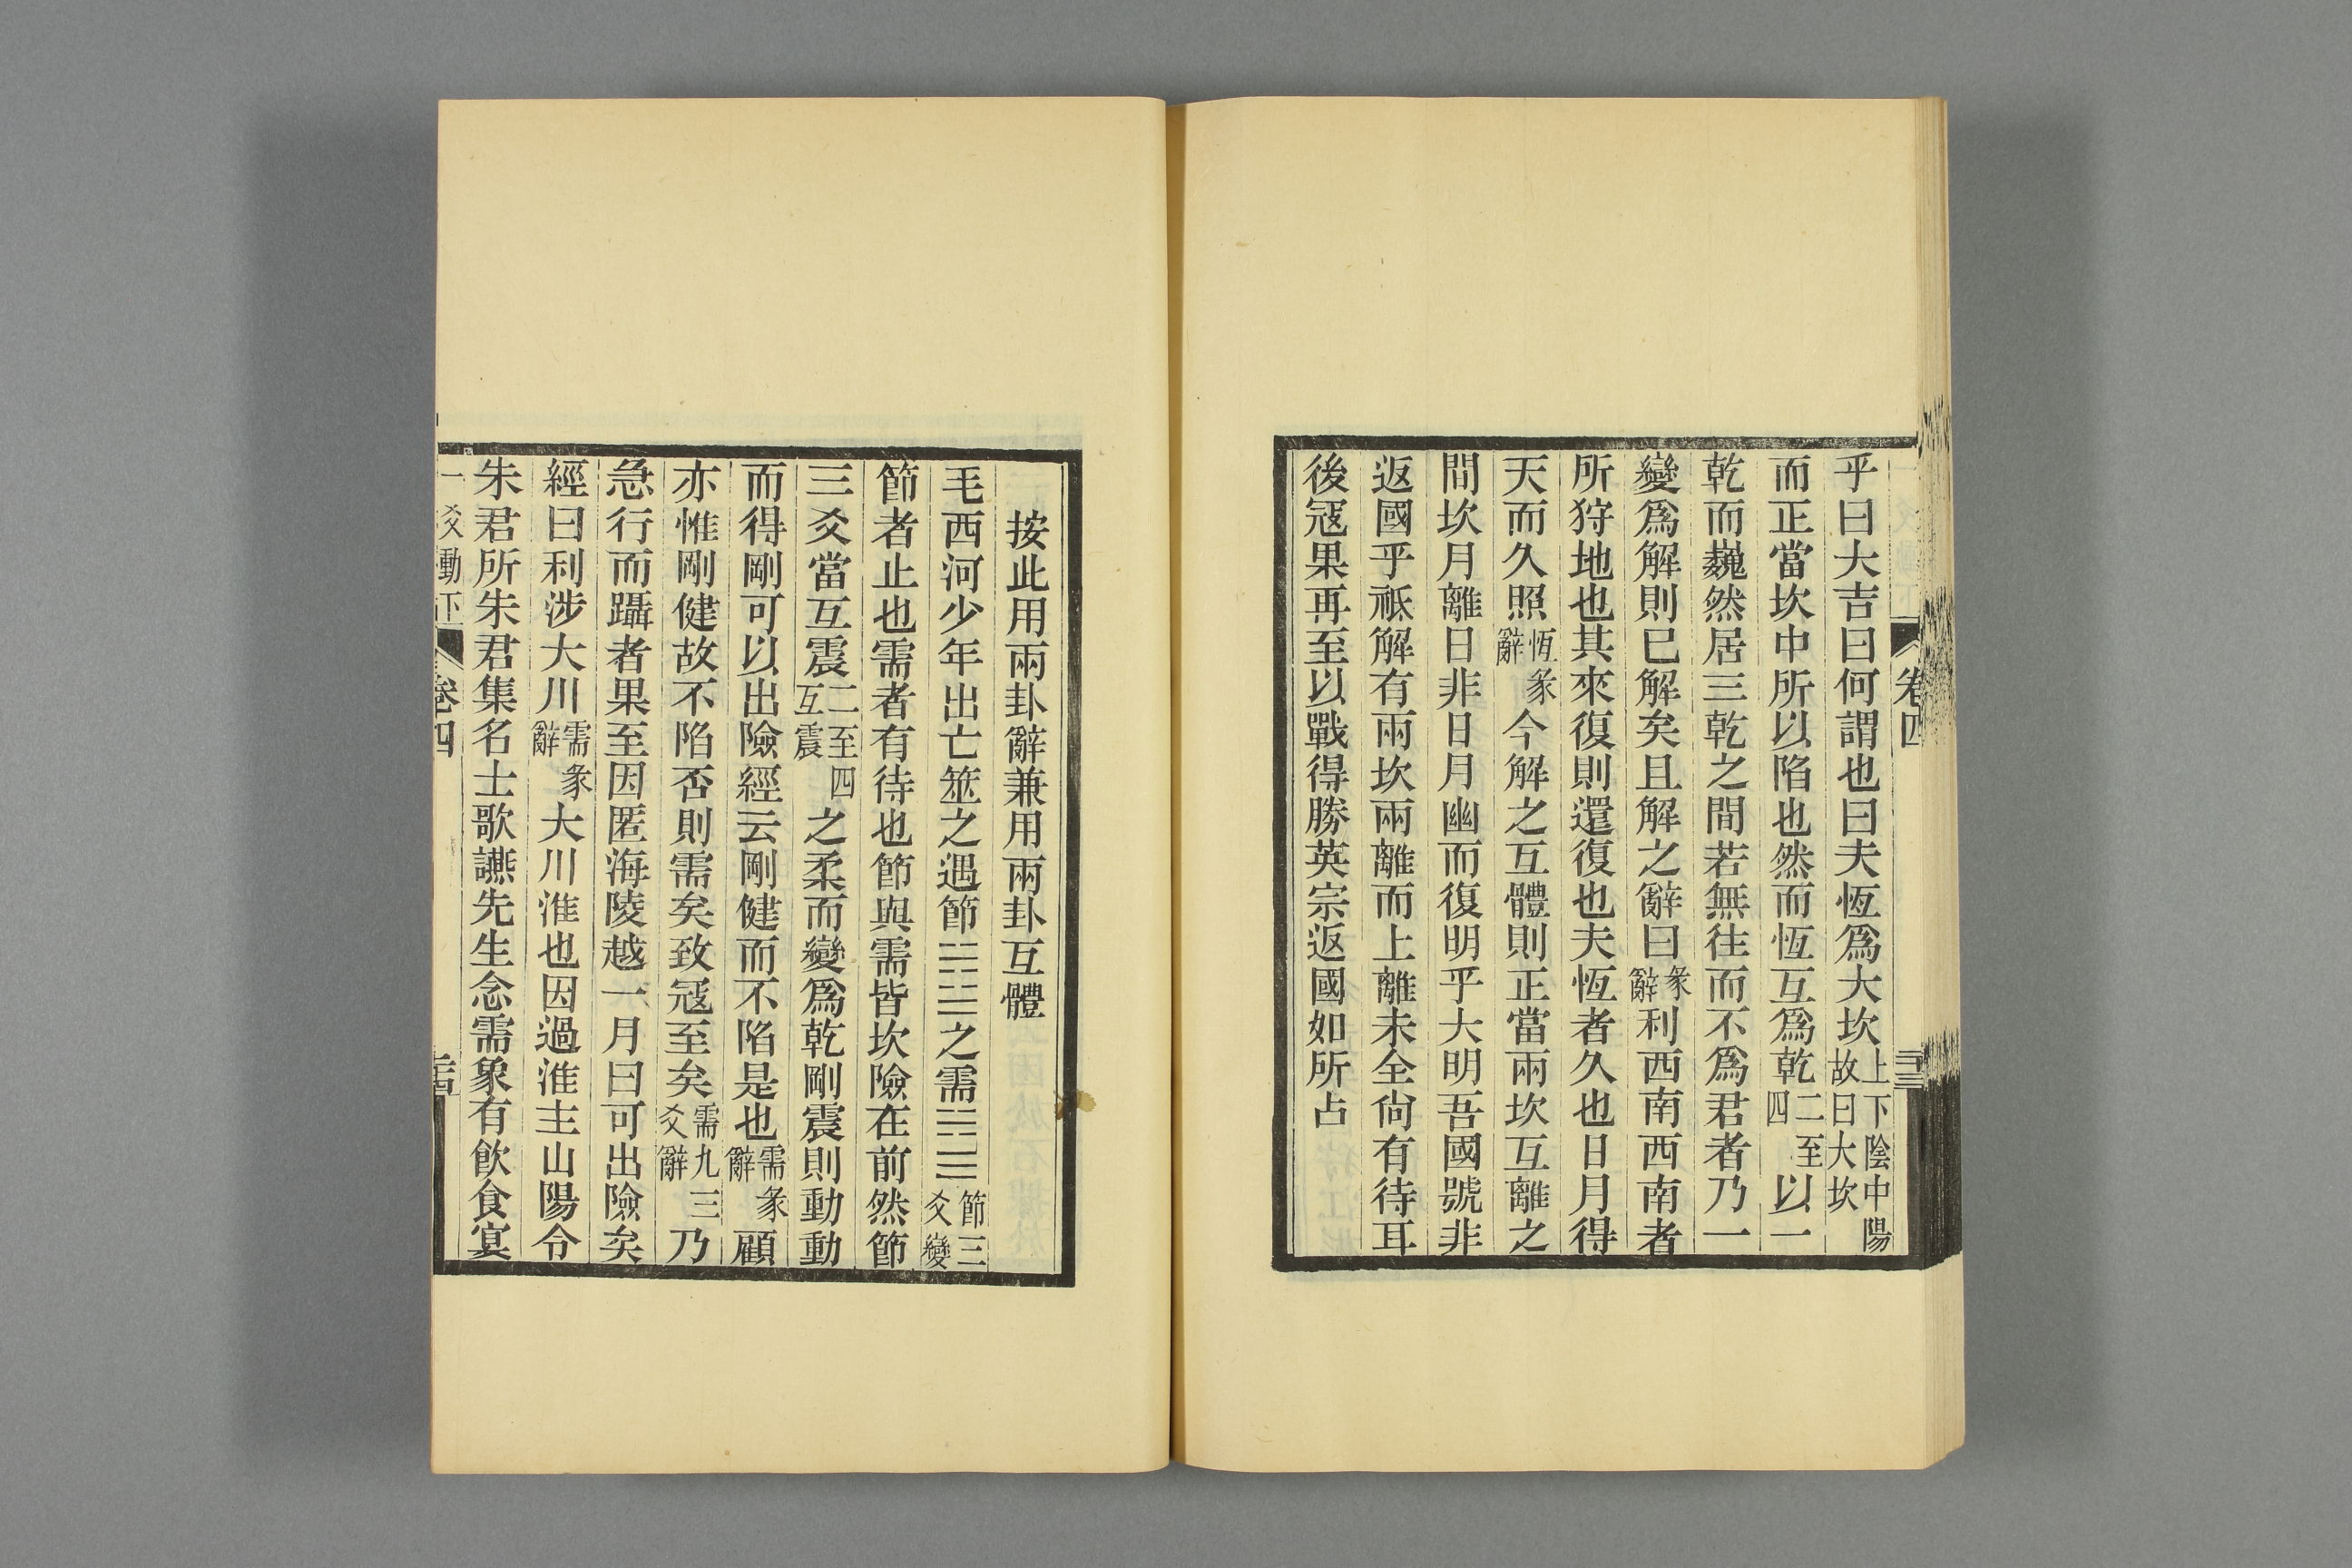 卷四
乎曰大吉曰何謂也曰夫恆爲大坎上下陰中陽故曰大坎
而正當坎中所以陷也然而恆互爲乾二至四以一
乾而巍然居三乾之間若無往而不爲君者乃一
變爲解則已解矣且解之辭曰彖辭利西南西南者
所狩地也其來復則還復也夫恆者久也日月得
天而久照恆彖辭今解之互體則正當兩坎互離之
間坎月離日非日月幽而復明乎大明吾國號非
返國乎祗解有兩坎兩離而上離未全尙有待耳
後冦果再至以戰得勝英宗返國如所占
按此用兩卦辭兼用兩卦互體
毛西河少年出亡筮之遇節之需節三爻變
節者止也需者有待也節與需皆坎險在前然節
三爻當互震二至四互震之柔而變爲乾剛震則動動
而得剛可以出險經云剛健而不陷是也需彖辭顧
亦惟剛健故不陷否則需矣致冦至矣需九三爻辭乃
急行而躡者果至因匿海陵越一月曰可出險矣
經曰利涉大川需彖辭大川淮也因過淮主山陽令
朱君所朱君集名士歌讌先生念需象有飲食宴
一爻動下 卷四